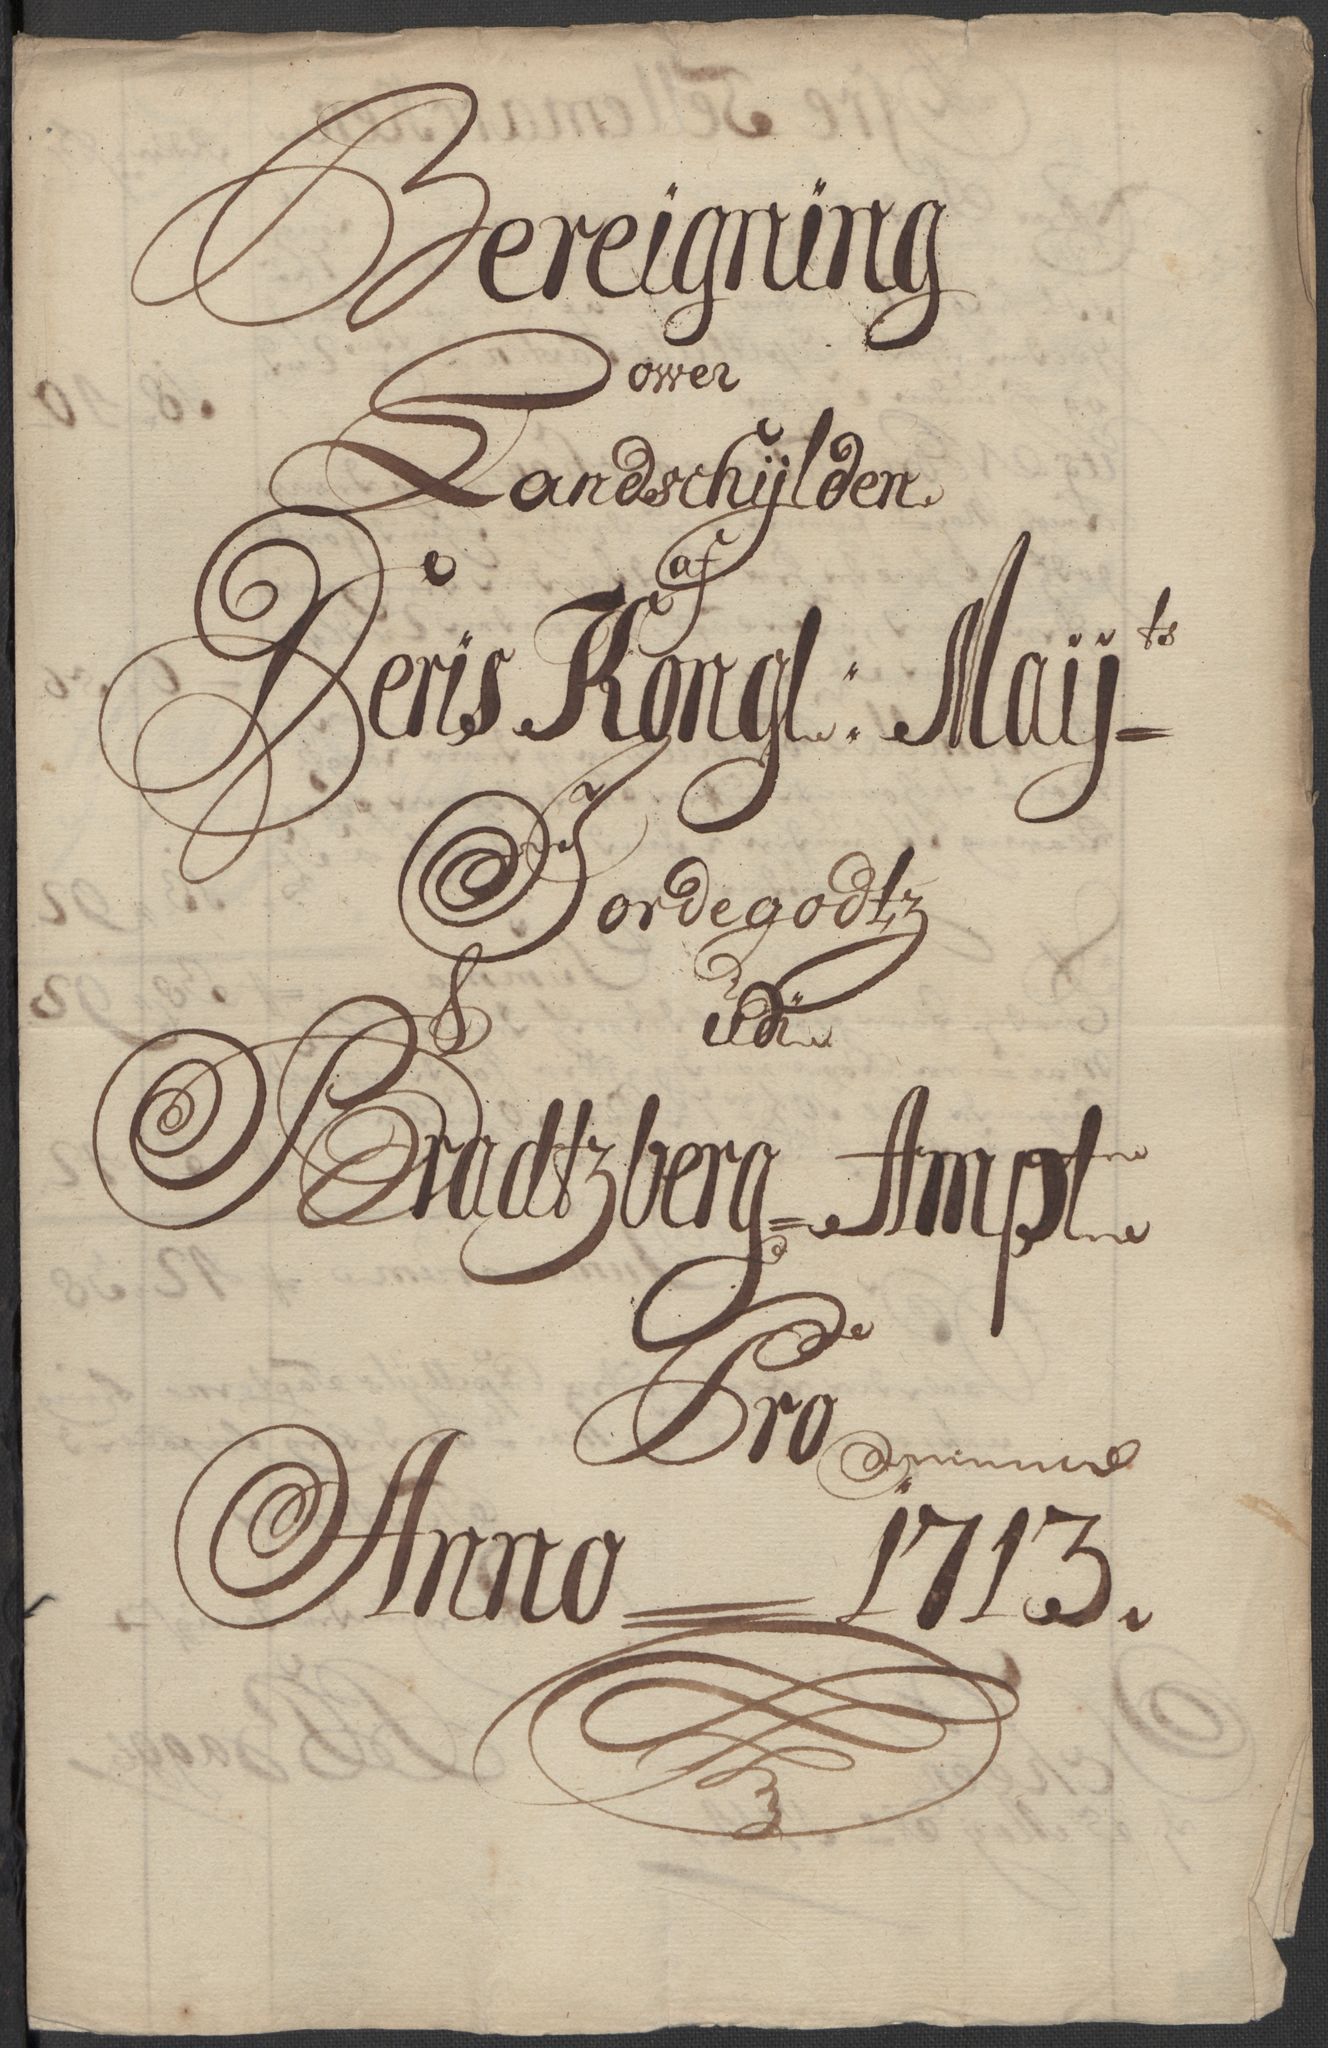 Bereigning
ower
Landschÿlden
af
Deris Kongl: Maÿts=
Jordegodtz
udi
Bradtzberg=Ampt
Pro
Anno = 1713.